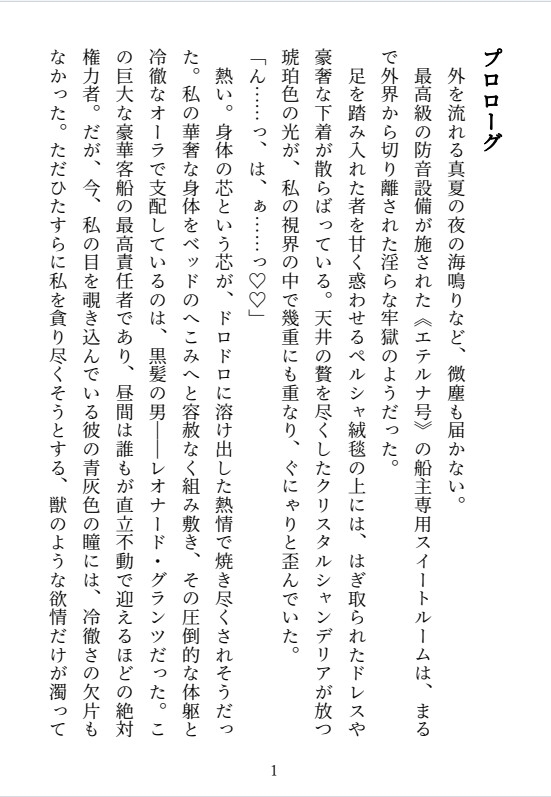 プロローグ
外を流れる真夏の夜の海鳴りなど、微塵も届かない。
最高級の防音設備が施された《エテルナ号》の船主専用スイートルームは、まる
で外界から切り離された淫らな牢獄のようだった。
足を踏み入れた者を甘く惑わせるペルシャ絨毯の上には、はぎ取られたドレスや
豪奢な下着が散らばっている。天井の贅を尽くしたクリスタルシャンデリアが放つ
琥珀色の光が、私の視界の中で幾重にも重なり、ぐにゃりと歪んでいた。
「ん……っ、は、ぁ……っ♡♡」
熱い。身体の芯という芯が、ドロドロに溶け出した熱情で焼き尽くされそうだっ
た。私の華奢な身体をベッドのへこみへと容赦なく組み敷き、その圧倒的な体躯と
冷徹なオーラで支配しているのは、黒髪の男――レオナード・グランツだった。こ
の巨大な豪華客船の最高責任者であり、昼間は誰もが直立不動で迎えるほどの絶対
権力者。だが、今、私の目を覗き込んでいる彼の青灰色の瞳には、冷徹さの欠片も
なかった。ただひたすらに私を貪り尽くそうとする、獣のような欲情だけが濁って
1